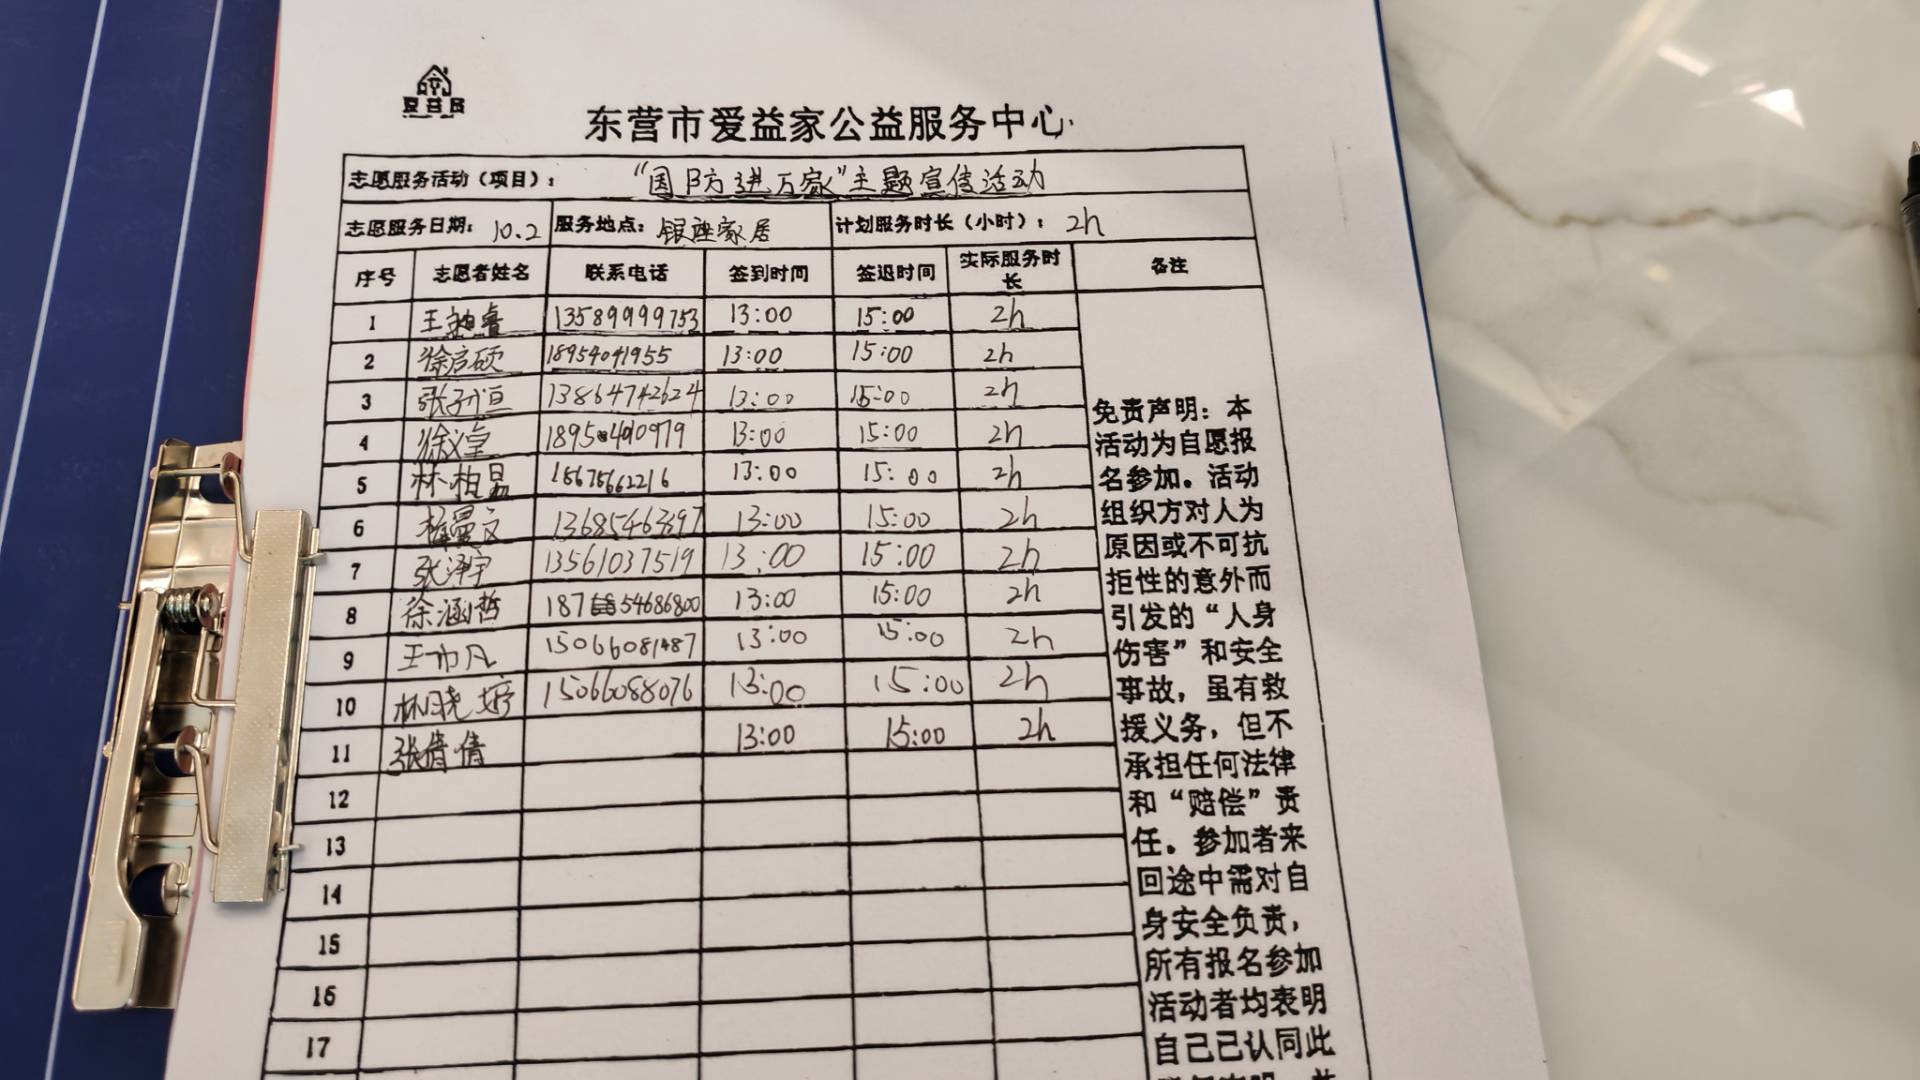 爱益家
东营市爱益家公益服务中心
志愿服务活动（项目）： “国防进万家”主题宣传活动
志愿服务日期： 10.2 服务地点： 银座家居 计划服务时长（小时）： 2h
序号 志愿者姓名 联系电话 签到时间 签退时间 实际服务时长 备注
1 王 睿 13589999753 13:00 15:00 2h
2 徐启硕 18954041955 13:00 15:00 2h
3 张子恒 13864742624 13:00 15:00 2h
4 徐义卓 13:00 15:00 2h
5 林柏昌 15675662216 13:00 15:00 2h
6 曼文 13:00 15:00 2h
7 张泽宇 13561037519 13:00 15:00 2h
8 徐涵哲 18754686800 13:00 15:00 2h
9 王 凡 15066081487 13:00 15:00 2h
10 林晓婷 15066088076 13:00 15:00 2h
11 张倩倩 13:00 15:00 2h
12
13
14
15
16
17
免责声明：本
活动为自愿报
名参加。活动
组织方对人为
原因或不可抗
拒性的意外而
引发的“人身
伤害”和安全
事故，虽有救
援义务，但不
承担任何法律
和“赔偿”责
任。参加者来
回途中需对自
身安全负责，
所有报名参加
活动者均表明
自己已认同此